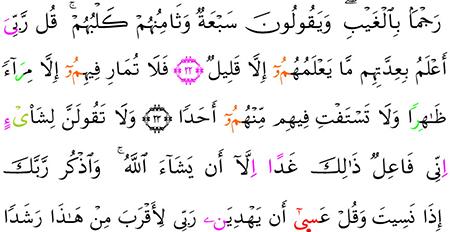 رَجْمًۢا بِالْغَيْبِۖ وَيَقُولُونَ سَبْعَةٌ وَثَامِنُهُمْ كَلْبُهُمْۚ قُل رَّبِّيَ
أَعْلَمُ بِعِدَّتِهِم مَّا يَعْلَمُهُمُۥٓ إِلَّا قَلِيلٌ ﴿٢٢﴾ فَلَا تُمَارِ فِيهِمُۥٓ إِلَّا مِرَآءً
ظَٰهِرًا وَلَا تَسْتَفْتِ فِيهِم مِّنْهُمُۥٓ أَحَدًا ﴿٢٣﴾ وَلَا تَقُولَنَّ لِشَا۟ىْءٍ
اِنِّي فَاعِلٌ ذَٰلِكَ غَدًا اِلَّآ أَن يَشَآءَ اللَّهُۚ وَاذْكُر رَّبَّكَ
إِذَا نَسِيتَ وَقُلْ عَسِىٰٓ أَن يَهْدِيَنِۦ رَبِّي لِأَقْرَبَ مِنْ هَٰذَا رَشَدًا